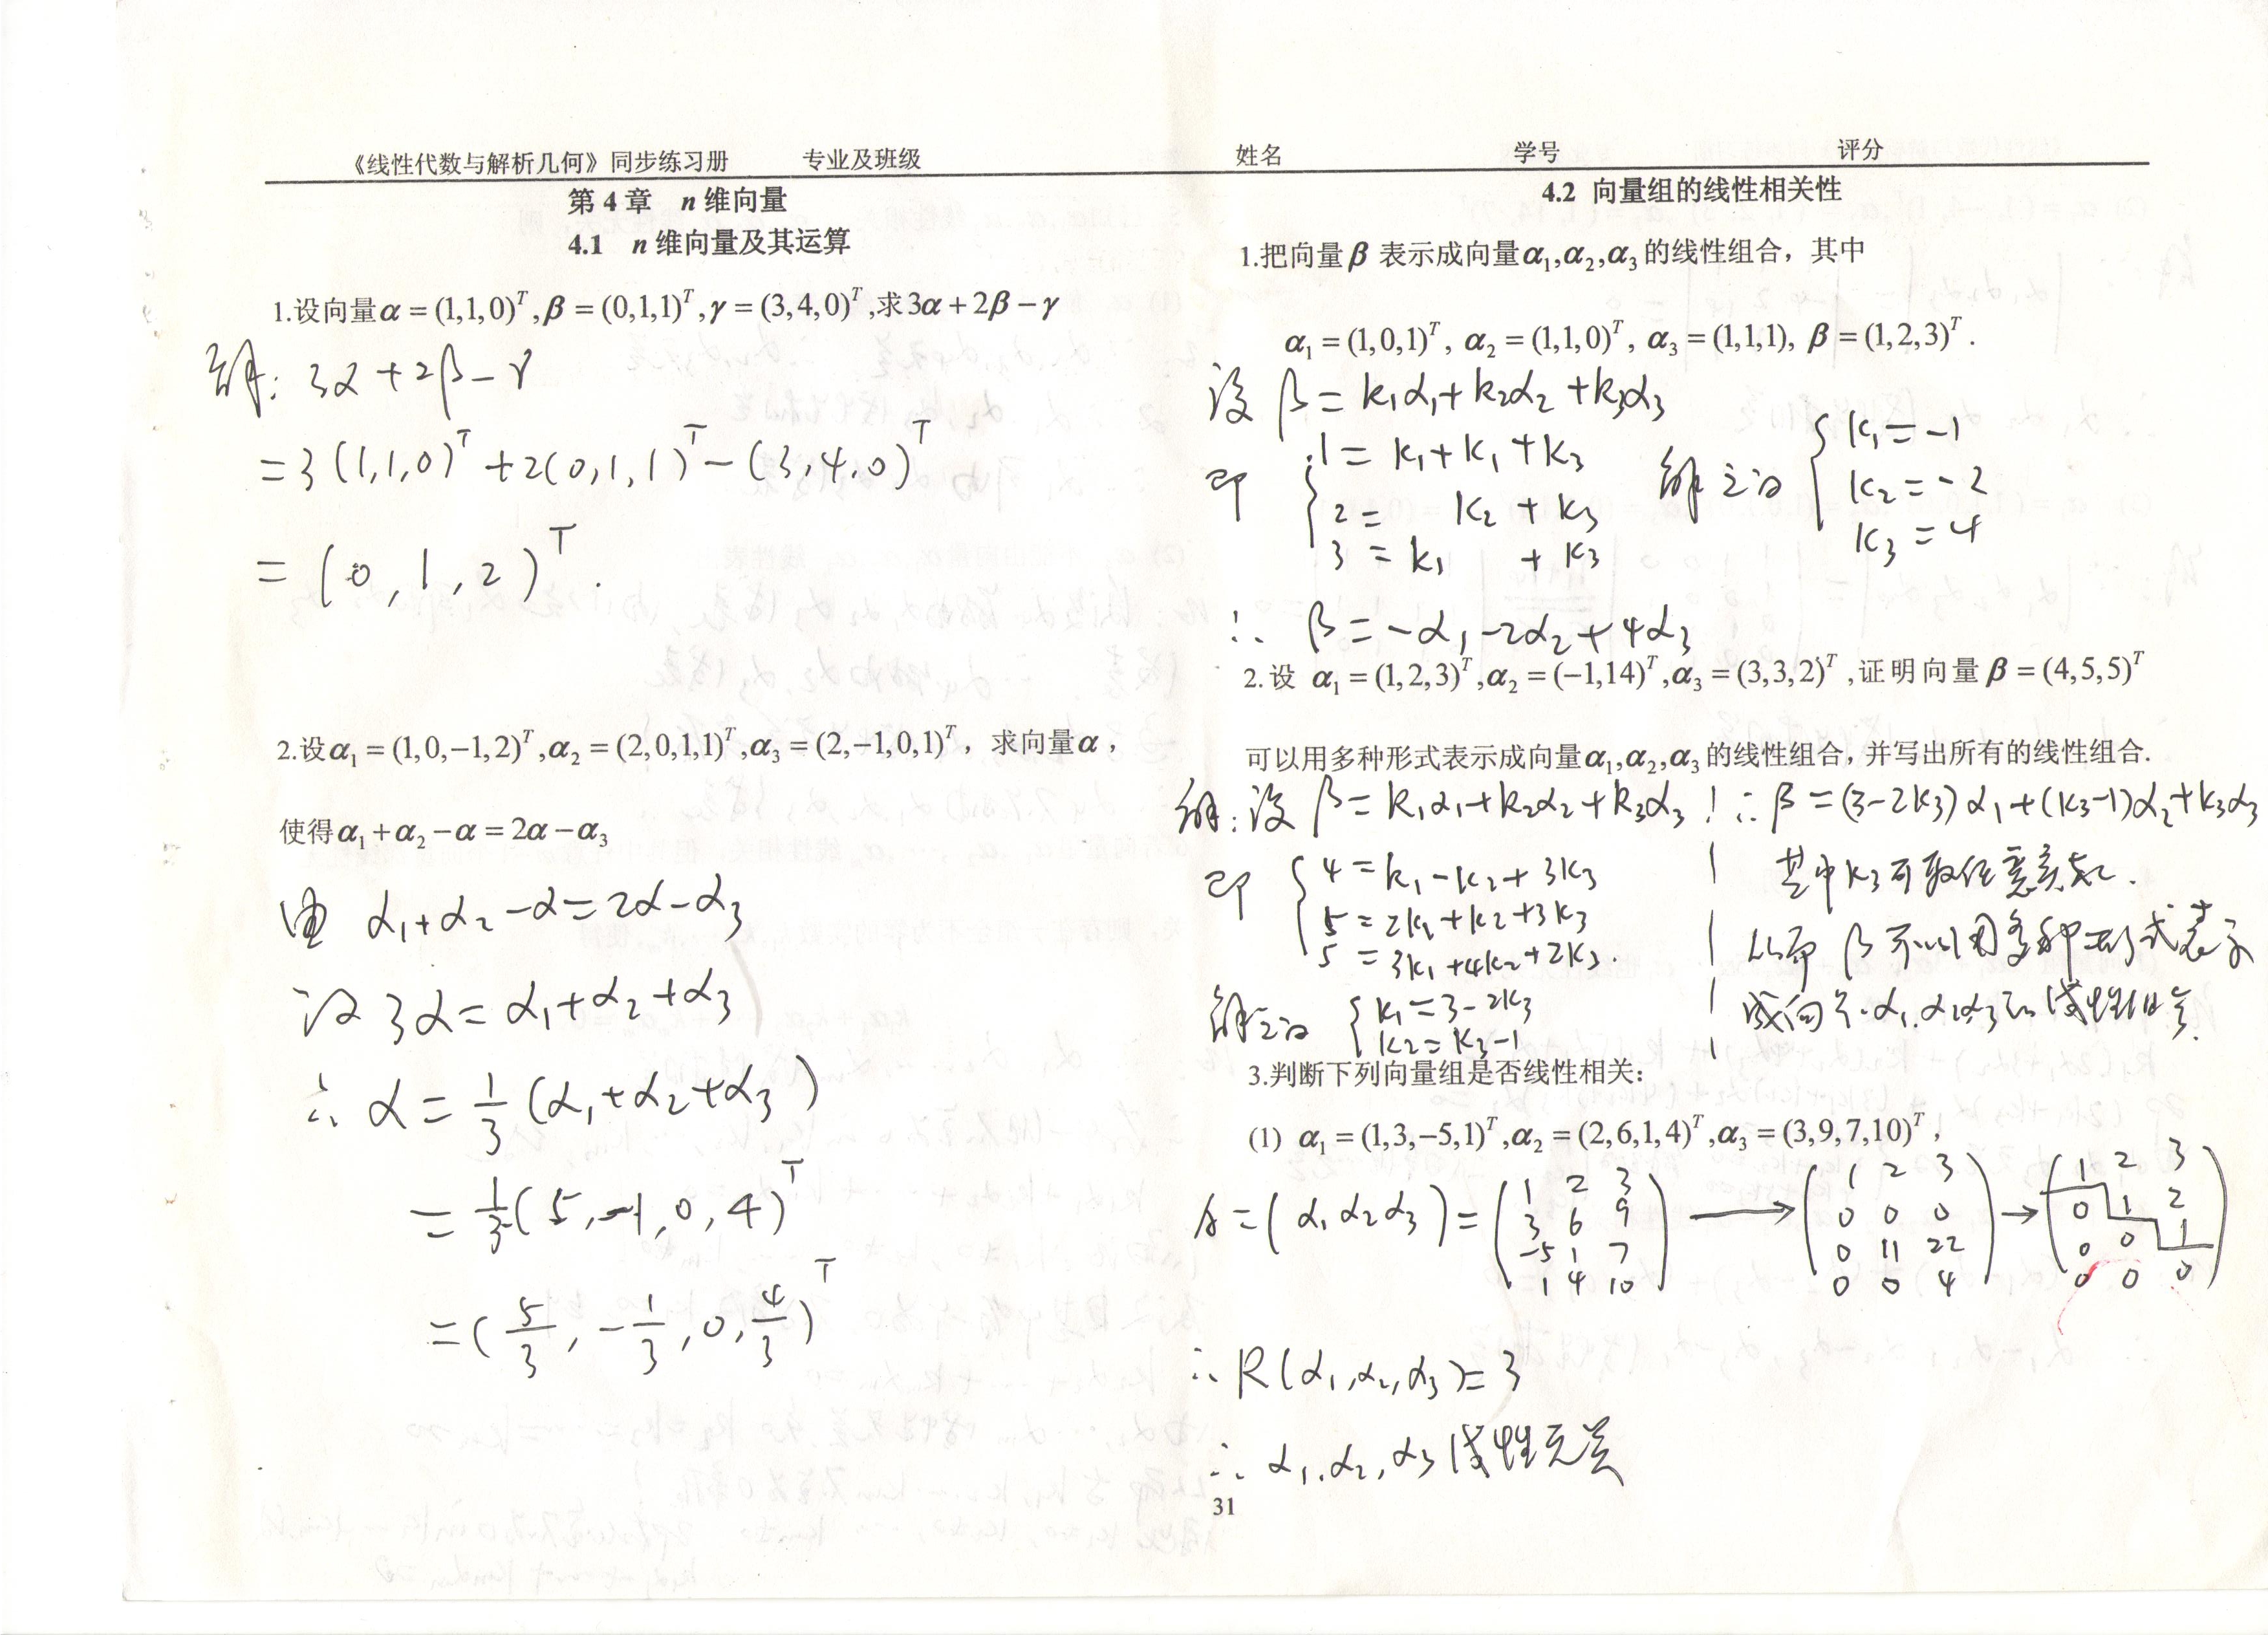 《线性代数与解析几何》同步练习册 专业及班级 姓名 学号 评分
第 4 章 n 维向量
4.1 n 维向量及其运算
1.设向量α = (1,1,0)^T, β = (0,1,1)^T, γ = (3,4,0)^T,求3α + 2β − γ
解: 3α + 2β − γ
= 3(1,1,0)^T + 2(0,1,1)^T − (3,4,0)^T
= (0, 1, 2)^T.
2.设α₁ = (1,0,−1,2)^T, α₂ = (2,0,1,1)^T, α₃ = (2,−1,0,1)^T，求向量α，
使得α₁ + α₂ − α = 2α − α₃
由 α₁+α₂−α=2α−α₃
得 3α = α₁+α₂+α₃
∴ α = 1/3 (α₁+α₂+α₃)
= 1/3 (5, −1, 0, 4)^T
= (5/3, −1/3, 0, 4/3)^T
4.2 向量组的线性相关性
1.把向量β 表示成向量α₁,α₂,α₃的线性组合，其中
α₁ = (1,0,1)^T, α₂ = (1,1,0)^T, α₃ = (1,1,1), β = (1,2,3)^T.
设 β = k₁α₁+k₂α₂+k₃α₃
即 { 1 = k₁+k₁+k₃ 解之得 { k₁ = −1
2 = k₂+k₃ k₂ = −2
3 = k₁ + k₃ k₃ = 4
∴ β = −α₁−2α₂+4α₃
2.设 α₁ = (1,2,3)^T, α₂ = (−1,14)^T, α₃ = (3,3,2)^T,证明向量β = (4,5,5)^T
可以用多种形式表示成向量α₁,α₂,α₃的线性组合，并写出所有的线性组合.
解: 设 β = k₁α₁+k₂α₂+k₃α₃
即 { 4 = k₁−k₂+3k₃
5 = 2k₁+k₂+3k₃
5 = 3k₁+4k₂+2k₃.
解之得 { k₁ = 3−2k₃
k₂ = k₃−1
∴ β = (3−2k₃)α₁+(k₃−1)α₂+k₃α₃
其中k₃可取任意实数.
从而 β 可以用多种形式表示
成向量α₁.α₂α₃的线性组合.
3.判断下列向量组是否线性相关：
(1) α₁ = (1,3,−5,1)^T, α₂ = (2,6,1,4)^T, α₃ = (3,9,7,10)^T,
A = (α₁ α₂ α₃) = (1 2 3 → (1 2 3 → (1 2 3
3 6 9 0 0 0 0 1 2
−5 1 7 0 11 22 0 0 1
1 4 10) 0 0 4) 0 0 0)
∴ R(α₁,α₂,α₃) = 3
∴ α₁.α₂,α₃ 线性无关
31